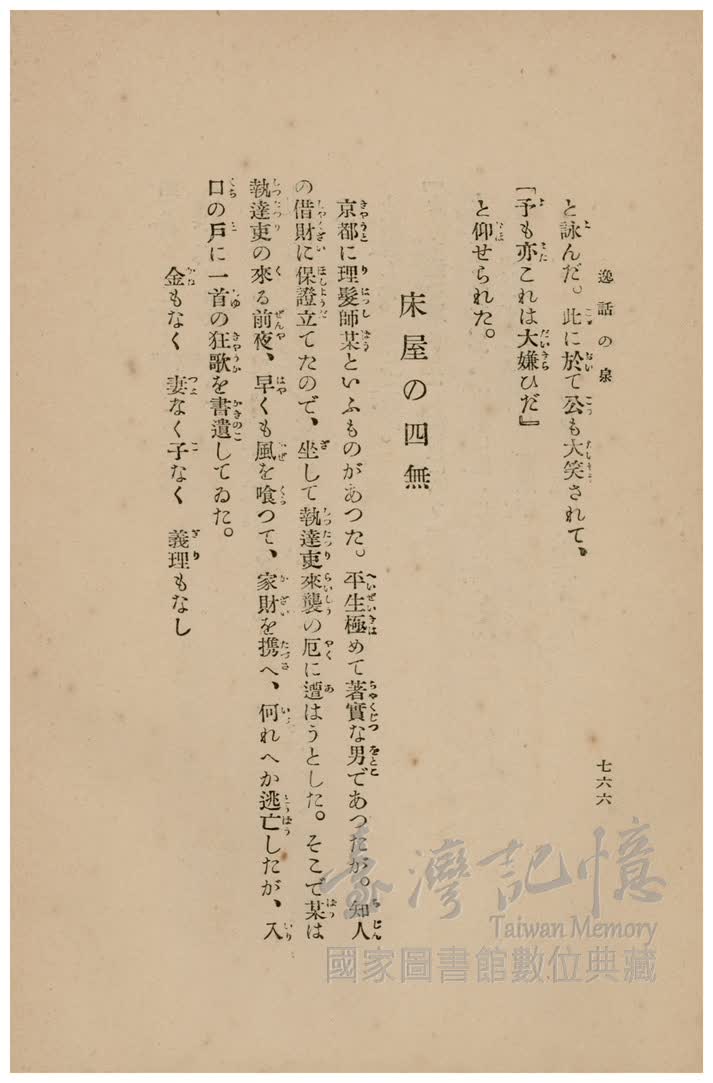 逸話の泉
七六六
と詠んだ。此に於て公も大笑されて、
「予も亦これは大嫌ひだ』
と仰せられた。
床屋の四無
京都に理髮師某といふものがあつた。平生極めて著實な男であつたが。知人
の借財に保證立てたので、坐して執達吏來襲の厄に遭はうとした。そこで某は
執達吏の來る前夜、早くも風を喰つて、家財を携へ、何れへか逃亡したが、入
口の戸に一首の狂歌を書遺してゐた。
金もなく 妻なく子なく 義理もなし
臺灣記憶
Taiwan Memory
國家圖書館數位典藏